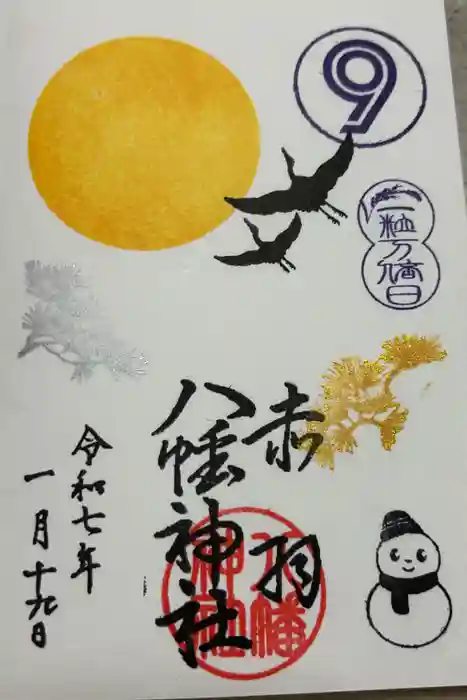 9
一粒万倍日
赤羽
八幡神社
八幡神社
令和七年
一月十九日